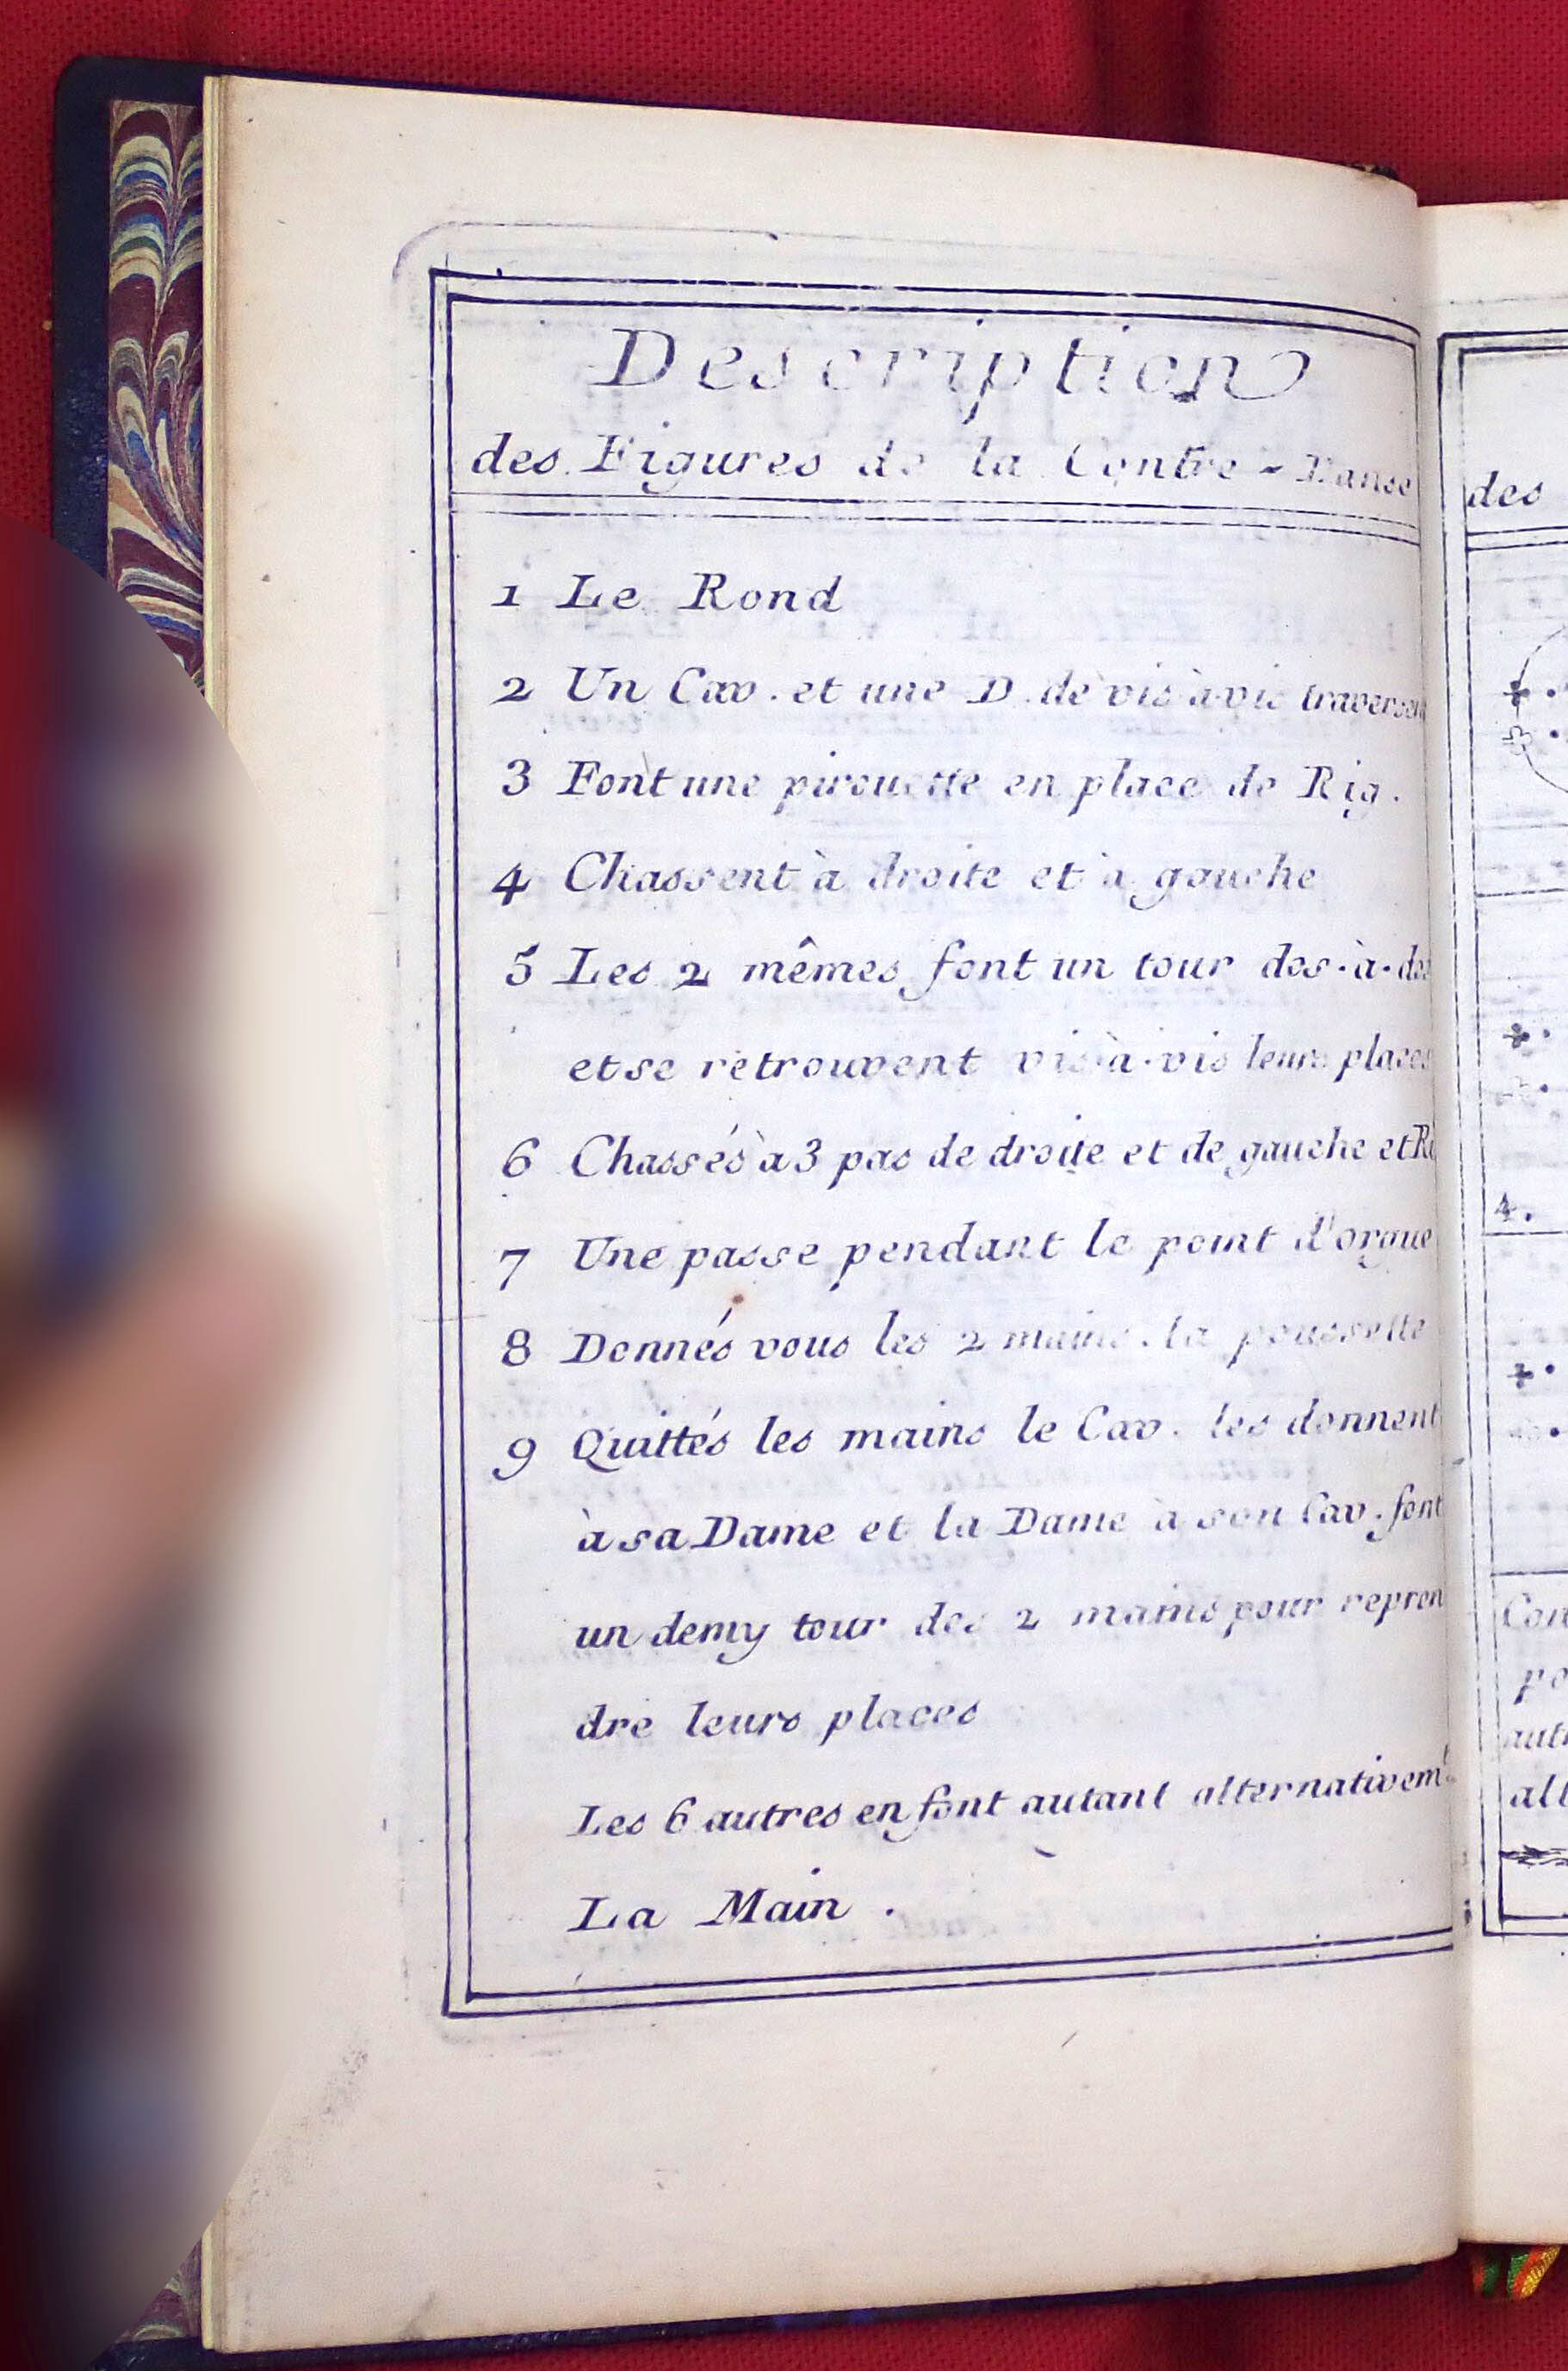 Description
des Figures de la Contre-Danse
1 Le Rond
2 Un Cav. et une D. de vis à vis traversent
3 Font une pirouette en place de Rig.
4 Chassent à droite et à gauche
5 Les 2 mêmes font un tour dos·à·dos
et se retrouvent vis·à·vis leurs places
6 Chassés à 3 pas de droite et de gauche et Ri
7 Une passe pendant le point d'orgue
8 Donnés vous les 2 mains. la poussette
9 Quittés les mains le Cav. les donnent
à sa Dame et la Dame à son Cav. font
un demy tour des 2 mains pour repren
dre leurs places
Les 6 autres en font autant alternativemt.
La Main.
des
4.
Con
po
aut
all